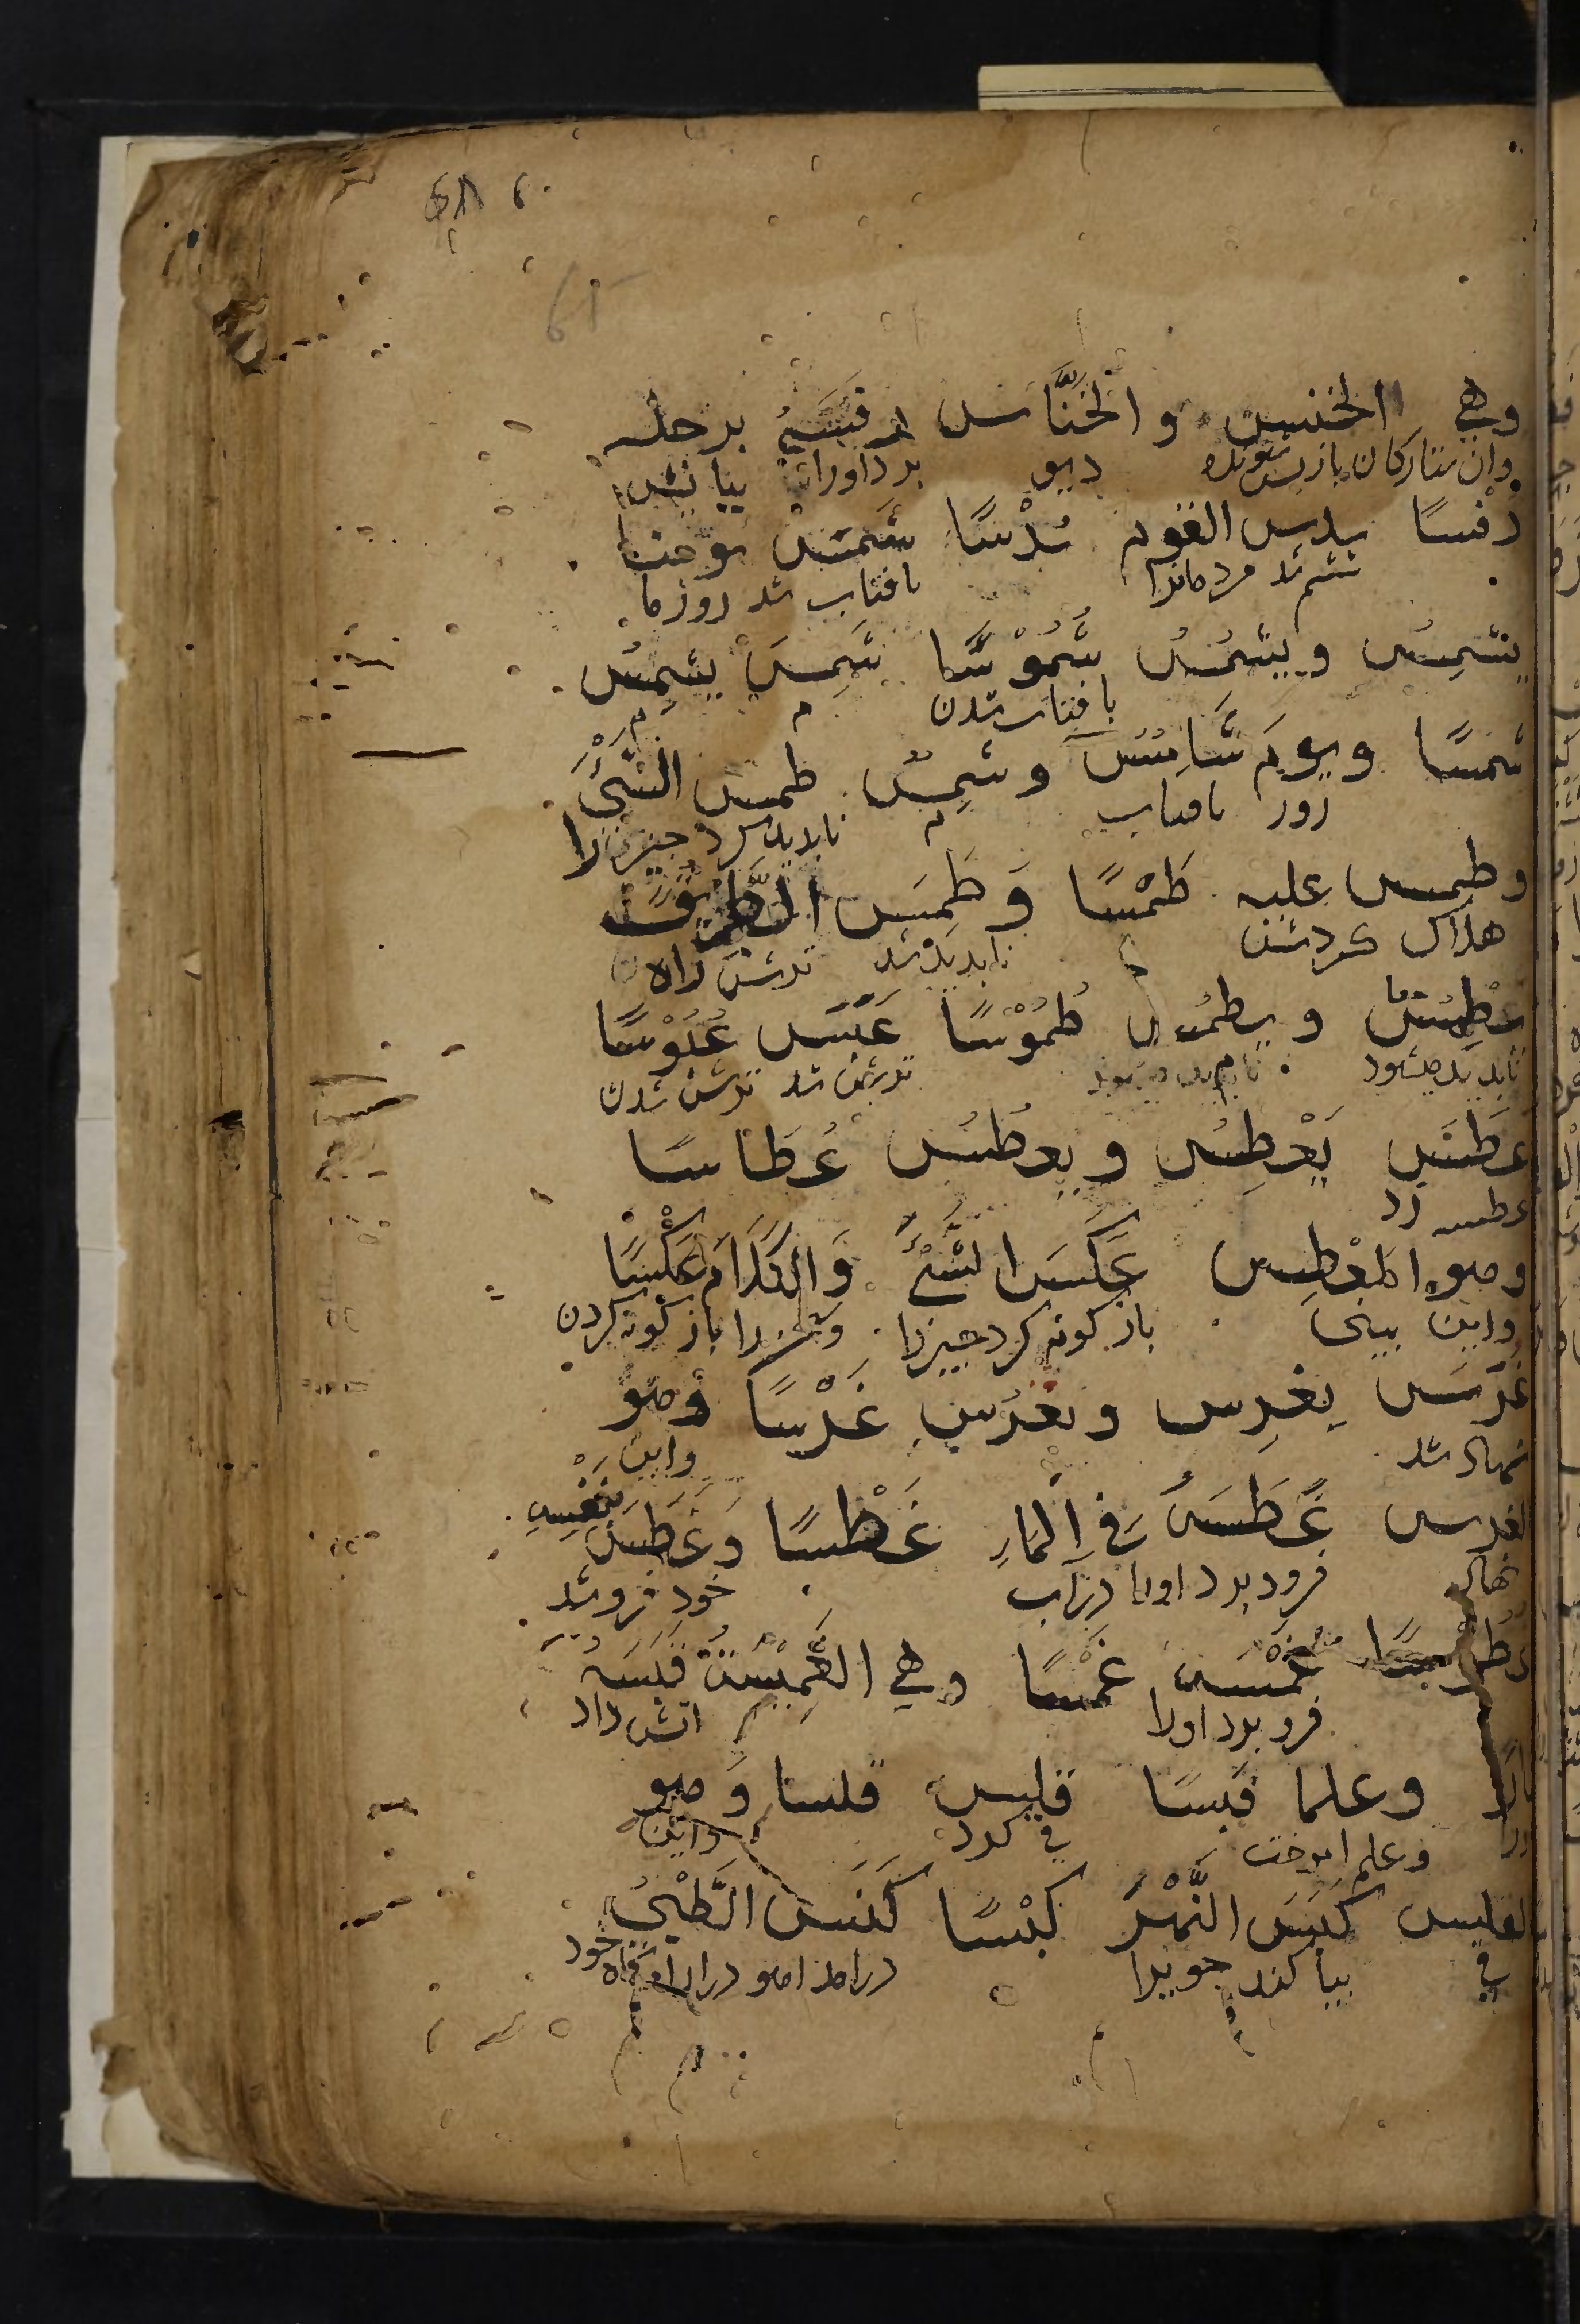 وهي الخنس والخَنَّاس رفسَهُ برجله
وان ستارکان باز پس شونده دیو بزد اورا بپایش
رفْسًا سدس القوم سُدْسًا شَمَسَ يومنا
ششم شد مردمانرا بافتاب شد روز ما
يشمِسُ ويشمُسُ شُمُوْسًا شَمِسَ يشمَسُ
بافتاب شدن م م
شمسًا ويوم شَامِسٌ وشمِسٌ طمس الشَيْءَ
روز بافتاب م نابدید کرد چیزرا
وطمس عليه طَمْسًا وَطَمَسَ الطَّرِيْقُ
هلاک کردش نابدید شد راه
يطمِسُ ويطمُسُ طُمُوْسًا عَبَسَ عُبُوْسًا
نابدید میشود ترش شد ترش شدن
عَطَسَ يَعْطِسُ ويعطُسُ عُطَاسًا
عطسه زد
وهو المَعْطِس عَكَسَ الشَّيْءَ وَالكَلَامَ عَكْسًا
واین بینی باز کونه کرد چیزرا باز کونه کردن
غَرَسَ يغرِس ويغرُس غَرْسًا وهو
نهال شد واین
الغرس غَطَسَهُ فِي الْمَاءِ غَطْسًا وَغَطَسَ بنفسِهِ
نهال فرو برد اورا در آب خود فرو شد
غَمَسَه غَمْسًا وهي الغَمِيْسَةُ قبَسَهُ
فرو برد اورا اتش داد
نارًا وعلما قبسًا قلس قلسا وَهو
وعلم اموخت قی کرد واین
القلس كبَسَ النَّهْرَ كبْسًا كَنَسَ الظَّبْيُ
قی بیاکند جویرا درامد اهو خود